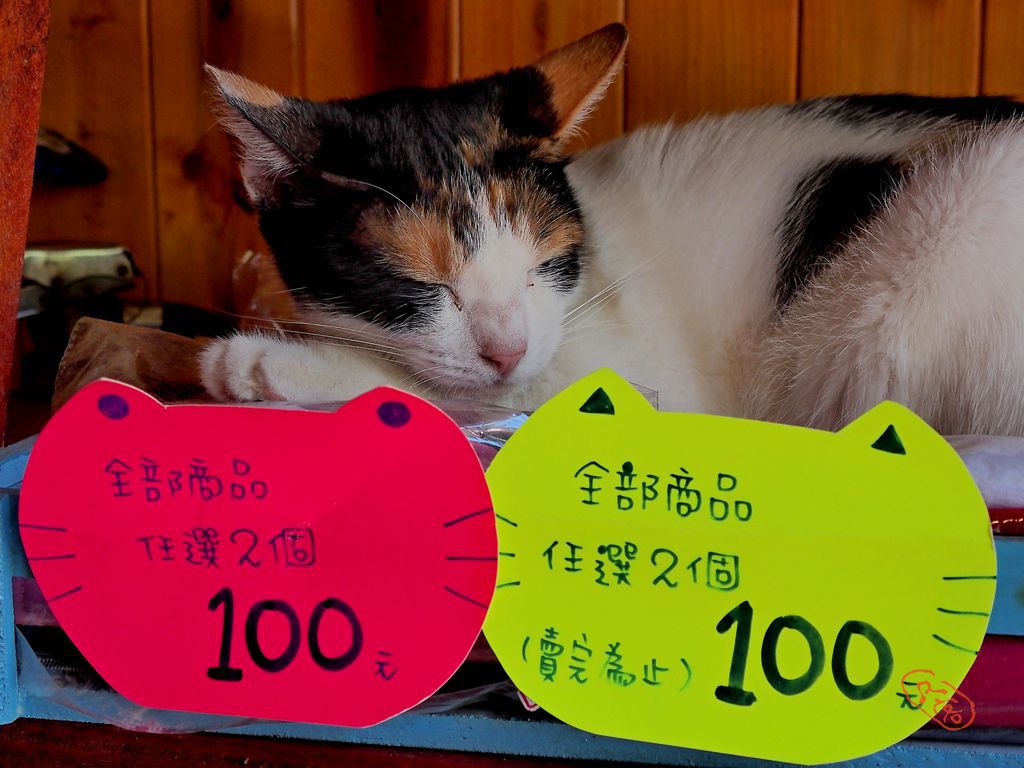 全部商品
任選2個
100元
全部商品
任選2個
(賣完為止)100元